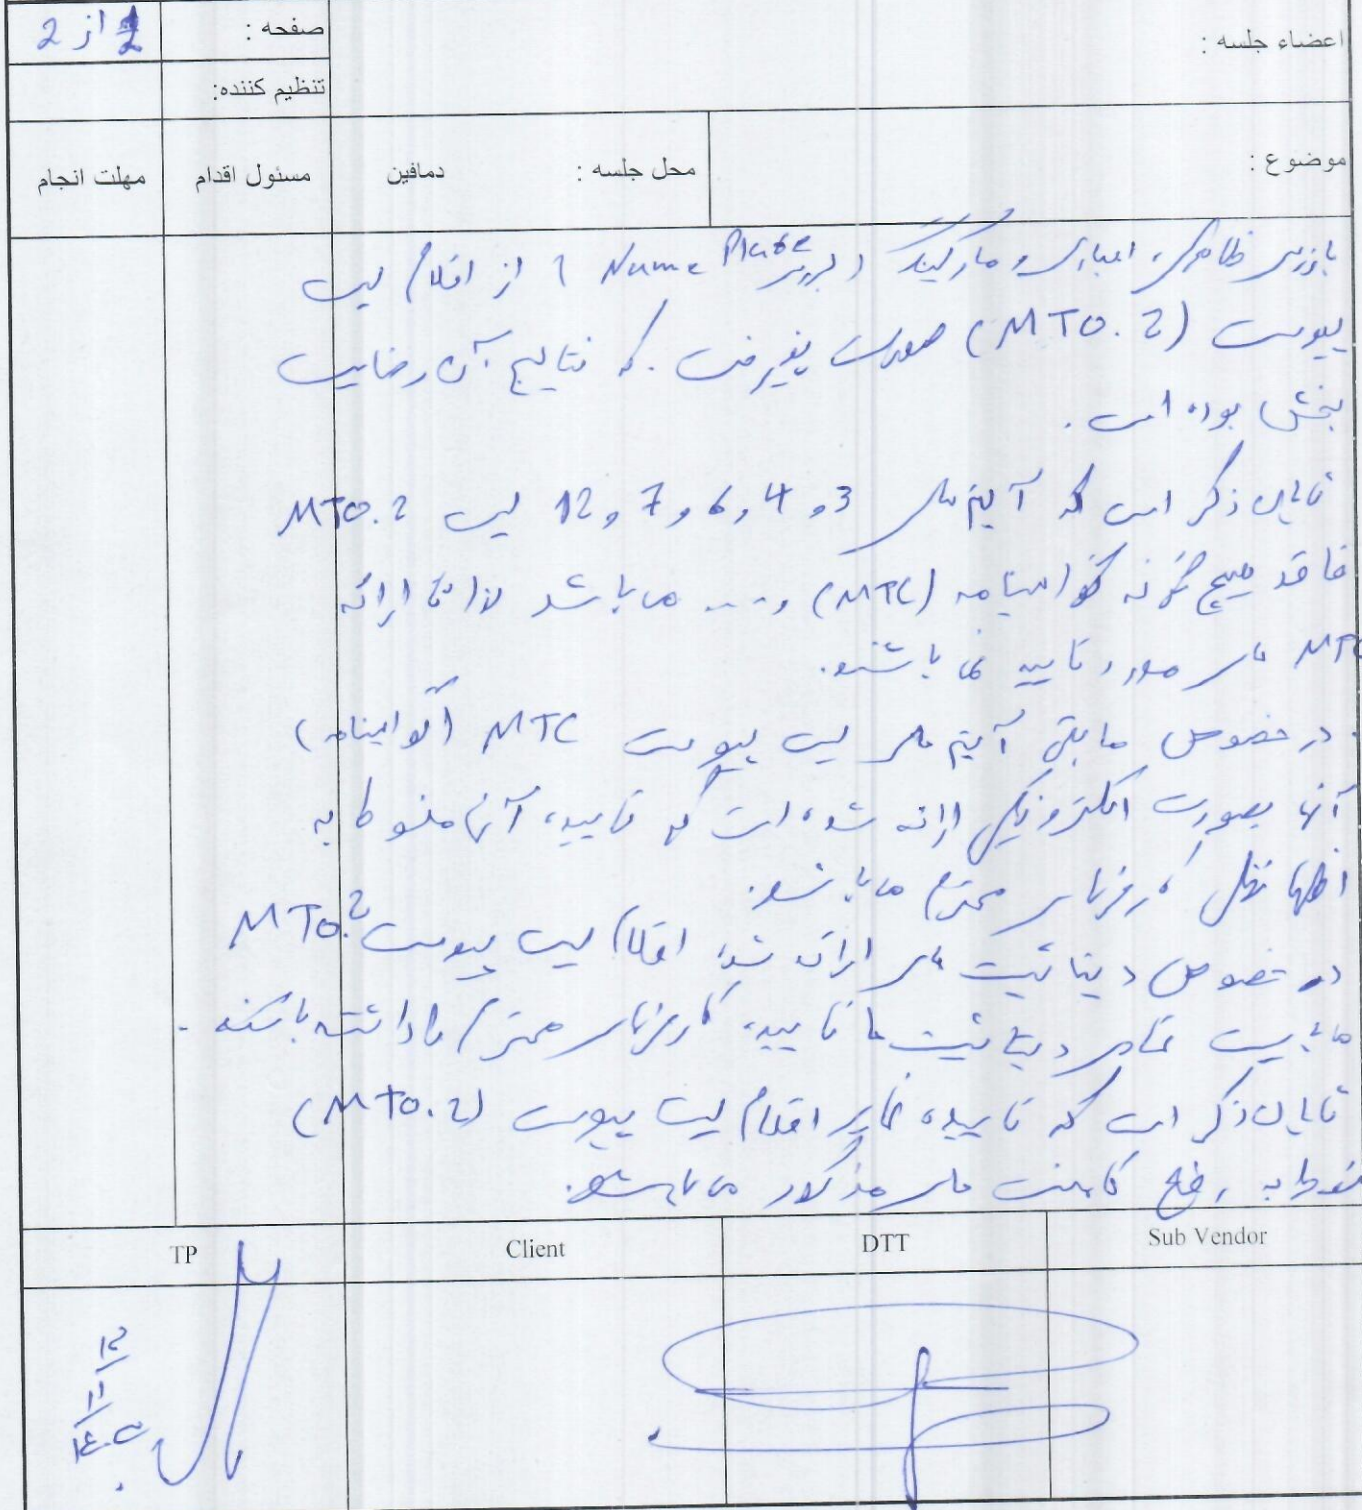 اعضاء جلسه :
صفحه : 1 از 2
تنظیم کننده:
موضوع :
محل جلسه : دمافین
مسئول اقدام
مهلت انجام
بازرسی ظاهری، ابعادی و مارکینگ (بررسی Name Plate) از اقلام لیست
پیوست (MTO.2) صورت پذیرفت. که نتایج آن رضایت
بخش بوده است.
شایان ذکر است که آیتم های 3 و 4 و 6 و 7 و 12 لیست MTO.2
فاقد هیچگونه گواهینامه (MTC) و .... می باشد لذا تا ارائه
MTC های مورد تایید نمی باشند.
در خصوص مابقی آیتم های لیست پیوست MTC (گواهینامه)
آنها بصورت الکترونیکی ارائه شده است که تاییده آنها منوط به
اظهار نظر کارفرمای محترم می باشد.
در خصوص دیتاشیت های ارائه شده اقلام لیست پیوست MTO.2
می بایست تمامی دیتاشیت ها تاییده کارفرمای محترم را داشته باشند.
شایان ذکر است که تاییده نهایی اقلام لیست پیوست (MTO.2)
منوط به رفع کامنت های مذکور می باشد.
Sub Vendor
DTT
Client
TP